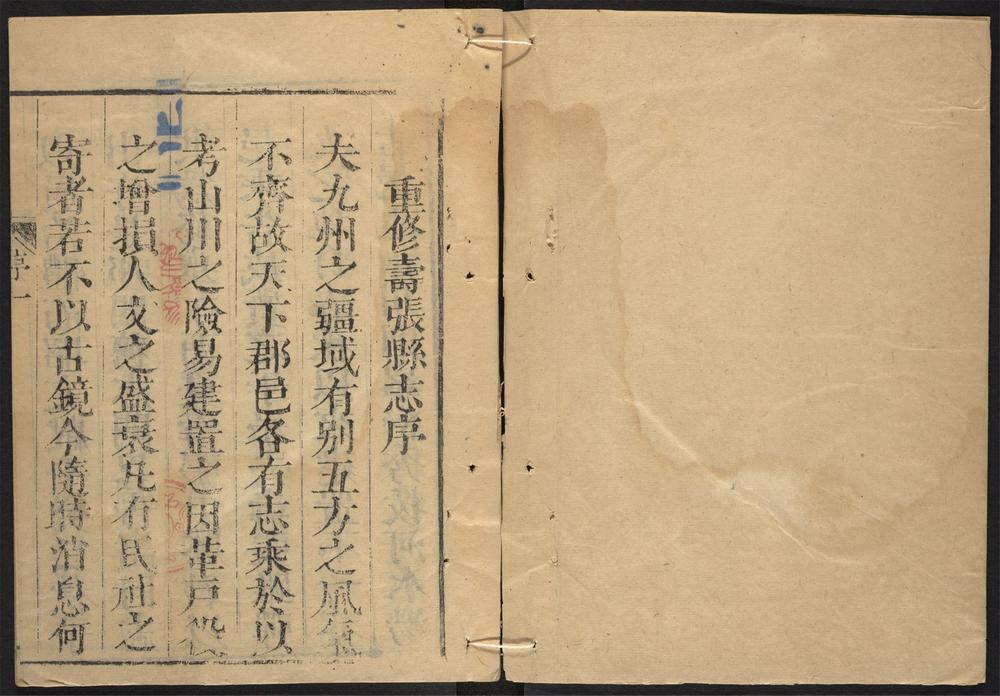 重修壽張縣志序
夫九州之疆域有别五方之風氣
不齊故天下郡邑各有志乘於以
考山川之險易建置之因革戸役
之增損人文之盛衰凡有民社之
寄者若不以古鏡今隨時消息何
序一